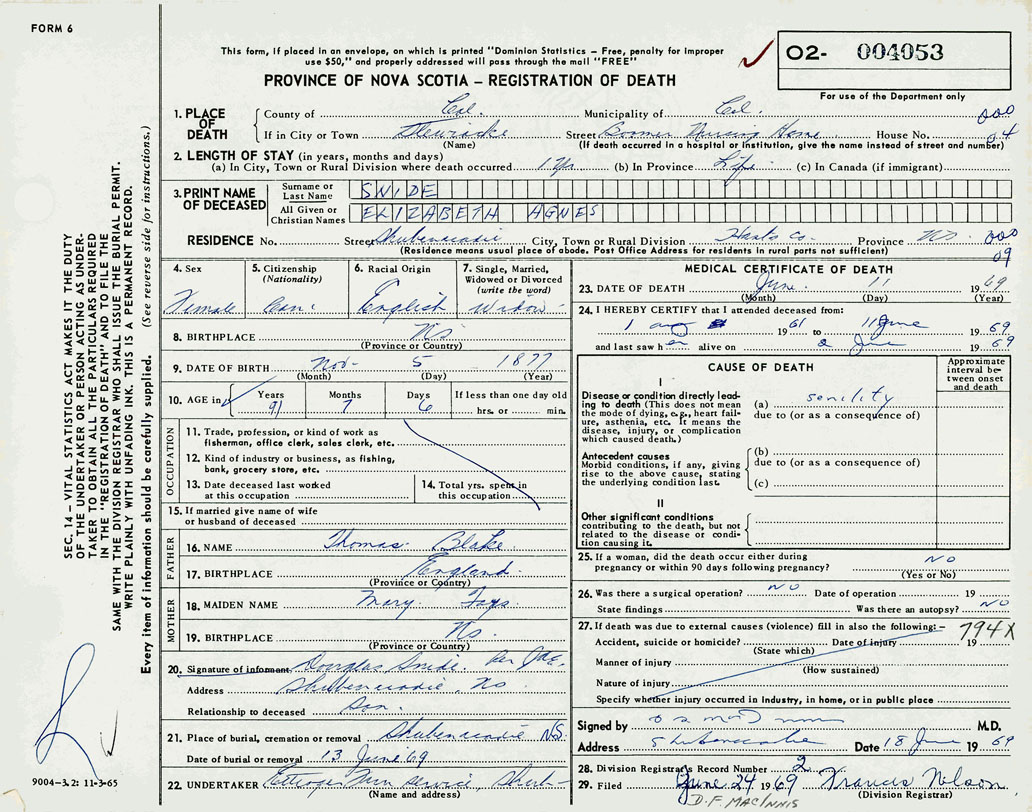 FORM 6
This form, if placed in an envelope, on which is printed "Dominion Statistics – Free, penalty for improper
use $50," and properly addressed will pass through the mail "FREE"
O2- 004053
PROVINCE OF NOVA SCOTIA – REGISTRATION OF DEATH
For use of the Department only
1. PLACE OF DEATH
County of Col. Municipality of Col. 000
If in City or Town Stewiacke Street Boomer Nursing Home House No. 04
(Name) (If death occurred in a hospital or institution, give the name instead of street and number)
2. LENGTH OF STAY (in years, months and days)
(a) In City, Town or Rural Division where death occurred 1 yr (b) In Province Life (c) In Canada (if immigrant)
3. PRINT NAME OF DECEASED
Surname or Last Name SWIDE
All Given or Christian Names ELIZABETH AGNES
RESIDENCE No. Street Shubenacadie City, Town or Rural Division Hants Co. Province NS. 000
(Residence means usual place of abode. Post Office Address for residents in rural parts not sufficient) 09
4. Sex Female
5. Citizenship (Nationality) Can.
6. Racial Origin English
7. Single, Married, Widowed or Divorced (write the word) Widow
8. BIRTHPLACE NS
(Province or Country)
9. DATE OF BIRTH Nov- 5 1877
(Month) (Day) (Year)
10. AGE in Years 91 Months 7 Days 6 If less than one day old
hrs. or min.
OCCUPATION
11. Trade, profession, or kind of work as
fisherman, office clerk, sales clerk, etc.
12. Kind of industry or business, as fishing,
bank, grocery store, etc.
13. Date deceased last worked
at this occupation
14. Total yrs. spent in
this occupation
15. If married give name of wife
or husband of deceased
FATHER
16. NAME Thomas Blake
17. BIRTHPLACE England
(Province or Country)
MOTHER
18. MAIDEN NAME Mary
19. BIRTHPLACE NS.
(Province or Country)
20. Signature of informant Douglas per
Address Shubenacadie, NS
Relationship to deceased Son.
21. Place of burial, cremation or removal Shubenacadie N.S.
Date of burial or removal 13 June 69
22. UNDERTAKER Service,
(Name and address)
MEDICAL CERTIFICATE OF DEATH
23. DATE OF DEATH June 11 1969
(Month) (Day) (Year)
24. I HEREBY CERTIFY that I attended deceased from:
1 1961 to 11 June 1969
and last saw her alive on June 1969
CAUSE OF DEATH
Approximate interval between onset and death
I
Disease or condition directly leading to death (This does not mean the mode of dying, e.g., heart failure, asthenia, etc. It means the disease, injury, or complication which caused death.)
(a) senility
due to (or as a consequence of)
Antecedent causes
Morbid conditions, if any, giving rise to the above cause, stating the underlying condition last.
(b)
due to (or as a consequence of)
(c)
II
Other significant conditions
contributing to the death, but not related to the disease or condition causing it.
25. If a woman, did the death occur either during
pregnancy or within 90 days following pregnancy? NO
(Yes or No)
26. Was there a surgical operation? NO Date of operation 19
State findings Was there an autopsy? NO
27. If death was due to external causes (violence) fill in also the following:– 794X
Accident, suicide or homicide? Date of injury 19
(State which)
Manner of injury
(How sustained)
Nature of injury
Specify whether injury occurred in industry, in home, or in public place
Signed by M.D.
Address Shubenacadie Date 18 June 1969
28. Division Registrar's Record Number 2
29. Filed June 24 1969 Francis Nelson
(Division Registrar)
D.F. MACINNIS
SEC. 14 – VITAL STATISTICS ACT MAKES IT THE DUTY
OF THE UNDERTAKER OR PERSON ACTING AS UNDER-
TAKER TO OBTAIN ALL THE PARTICULARS REQUIRED
IN THE "REGISTRATION OF DEATH" AND TO FILE THE
SAME WITH THE DIVISION REGISTRAR WHO SHALL ISSUE THE BURIAL PERMIT.
WRITE PLAINLY WITH UNFADING INK. THIS IS A PERMANENT RECORD.
Every item of information should be carefully supplied. (See reverse side for instructions.)
9004-3.2: 11-3-65